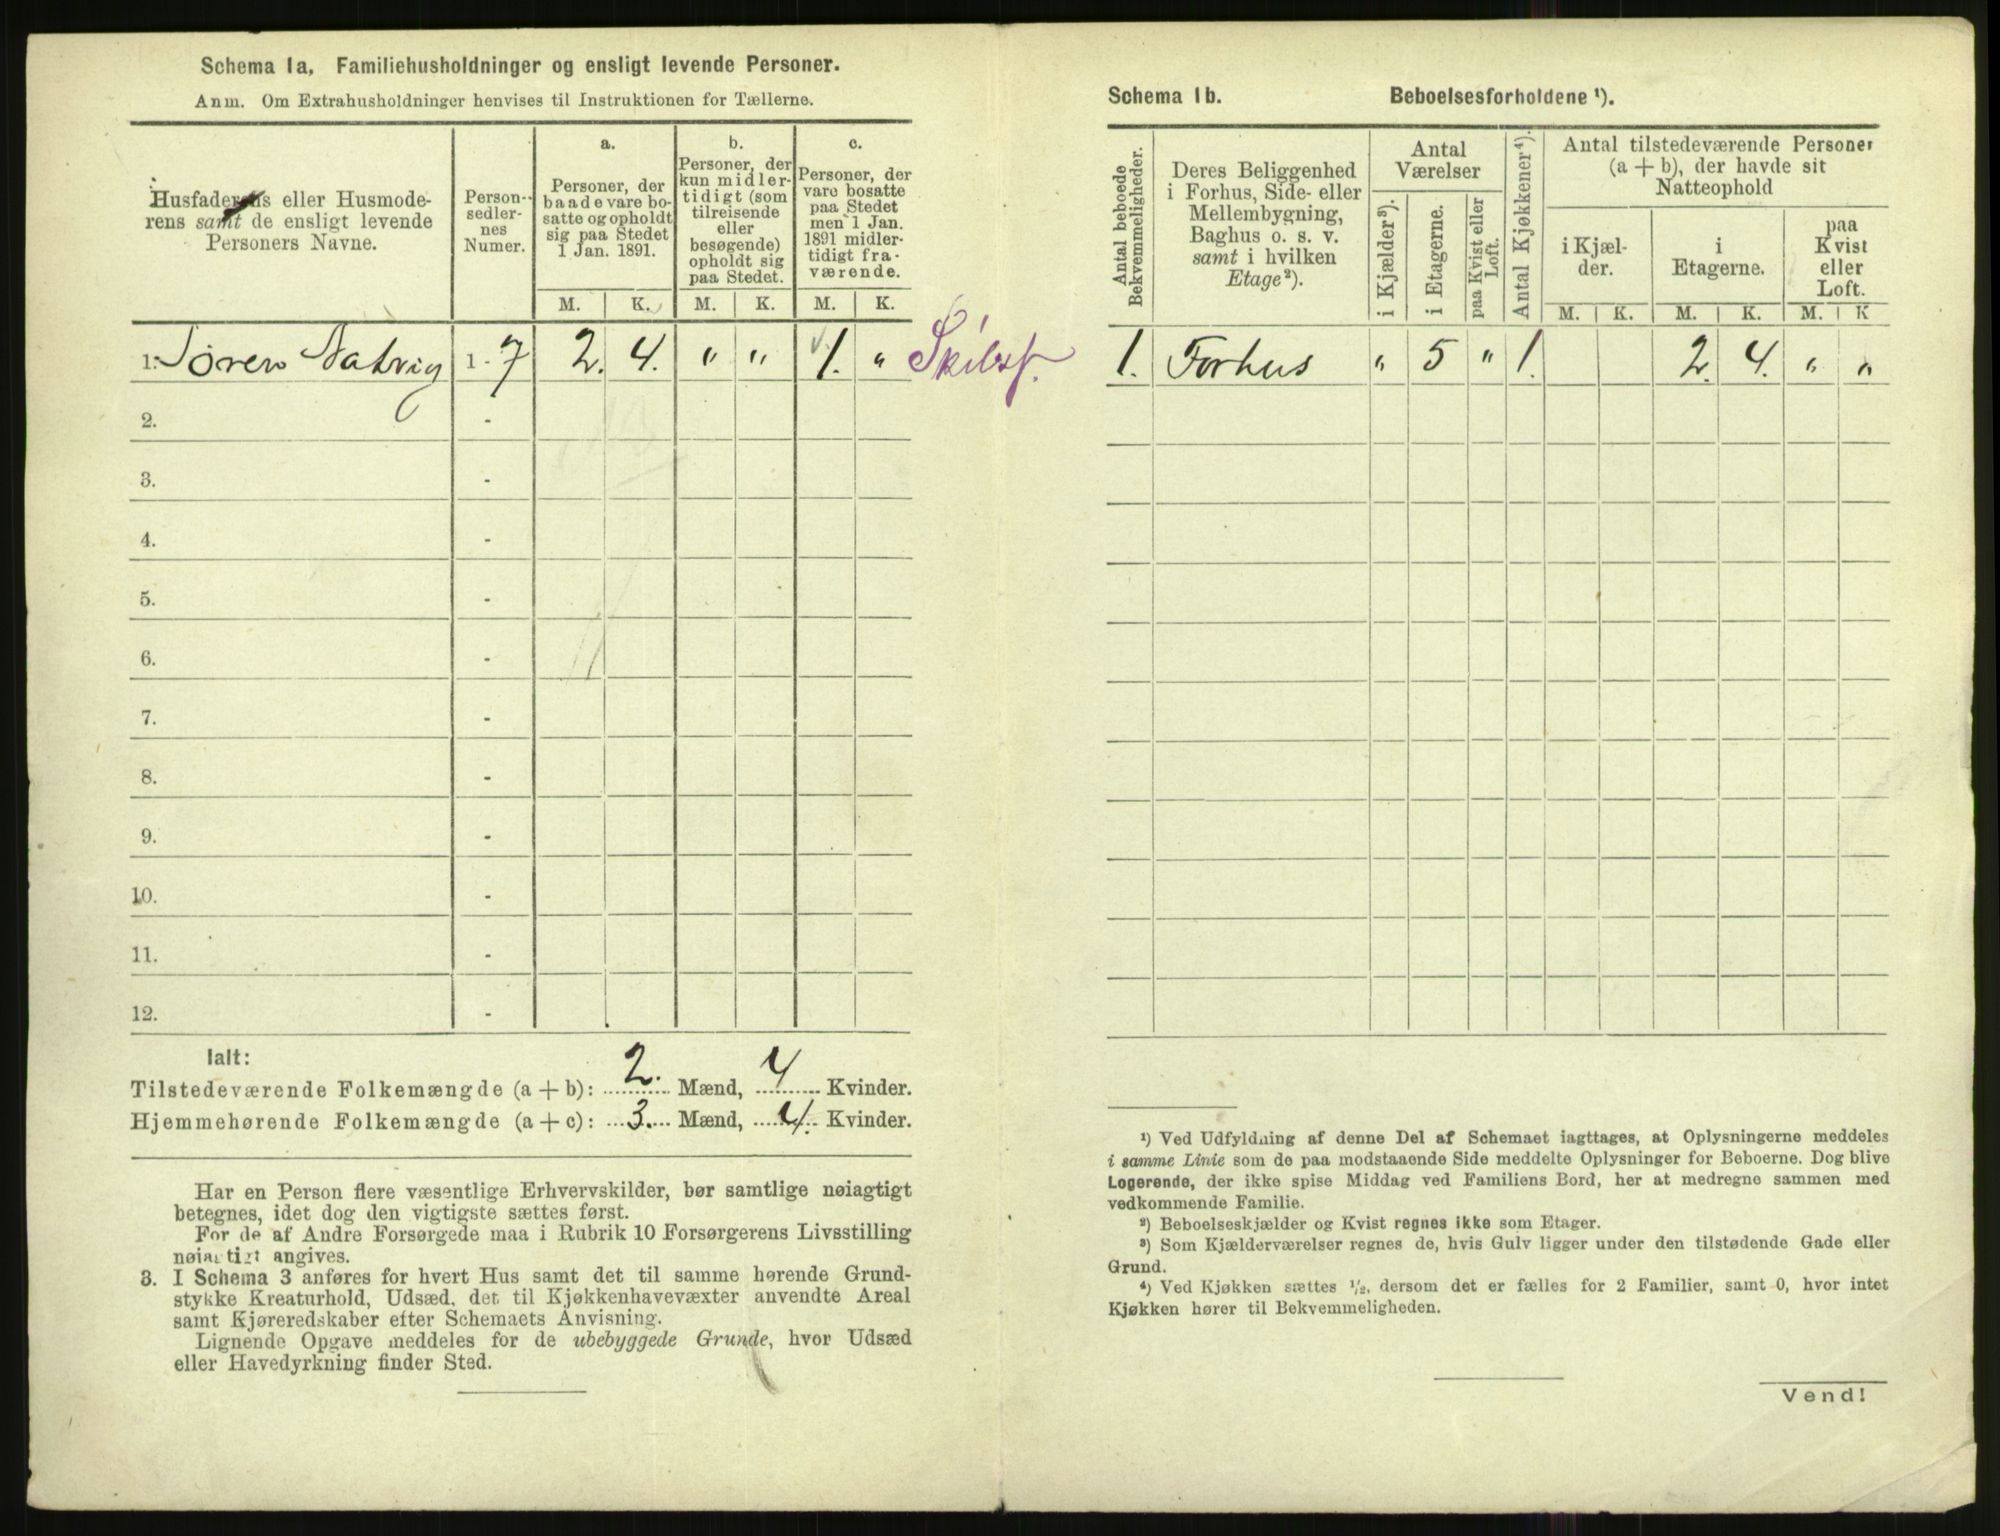 Schema 1a, Familiehusholdninger og ensligt levende Personer.
Anm. Om Extrahusholdninger henvises til Instruktionen for Tællerne.
Husfaderens eller Husmode-
rens samt de ensligt levende
Personers Navne.
Person-
sedler-
nes
Numer.
a.
Personer, der
baade vare bo-
satte og opholdt
sig paa Stedet
1 Jan. 1891.
b.
Personer, der
kun midler-
tidigt (som
tilreisende
eller
besøgende)
opholdt sig
paa Stedet.
c.
Personer, der
vare bosatte
paa Stedet
men 1 Jan.
1891 midler-
tidigt fra-
værende.
M. K. M. K. M. K.
1. Søren Natvig 1-7 2. 4. " " 1. " Skibsf.
2. -
3. -
4. -
5. -
6. -
7. -
8. -
9. -
10. -
11. -
12. -
Ialt:
Tilstedeværende Folkemængde (a + b): 2. Mænd, 4 Kvinder.
Hjemmehørende Folkemængde (a + c): 3. Mænd, 4. Kvinder.
Har en Person flere væsentlige Erhvervskilder, bør samtlige nøiagtigt
betegnes, idet dog den vigtigste sættes først.
For de af Andre Forsørgede maa i Rubrik 10 Forsørgerens Livsstilling
nøiagtigt angives.
3. I Schema 3 anføres for hvert Hus samt det til samme hørende Grund-
stykke Kreaturhold, Udsæd, det til Kjøkkenhavevæxter anvendte Areal
samt Kjøreredskaber efter Schemaets Anvisning.
Lignende Opgave meddeles for de ubebyggede Grunde, hvor Udsæd
eller Havedyrkning finder Sted.
Schema 1b. Beboelsesforholdene ¹).
Antal beboede
Bekvemmeligheder.
Deres Beliggenhed
i Forhus, Side- eller
Mellembygning,
Baghus o. s. v.
samt i hvilken
Etage²).
Antal
Værelser
i Kjælder³).
i Etagerne.
paa Kvist eller
Loft.
Antal Kjøkkener⁴).
Antal tilstedeværende Personer
(a + b), der havde sit
Natteophold
i Kjæl-
der.
i
Etagerne.
paa
Kvist
eller
Loft.
M. K. M. K. M. K
1. Forhus " 5 " 1. 2. 4. " "
¹) Ved Udfyldning af denne Del af Schemaet iagttages, at Oplysningerne meddeles
i samme Linie som de paa modstaaende Side meddelte Oplysninger for Beboerne. Dog blive
Logerende, der ikke spise Middag ved Familiens Bord, her at medregne sammen med
vedkommende Familie.
²) Beboelseskjælder og Kvist regnes ikke som Etager.
³) Som Kjælderværelser regnes de, hvis Gulv ligger under den tilstødende Gade eller
Grund.
⁴) Ved Kjøkken sættes ½, dersom det er fælles for 2 Familier, samt 0, hvor intet
Kjøkken hører til Bekvemmeligheden.
Vend!